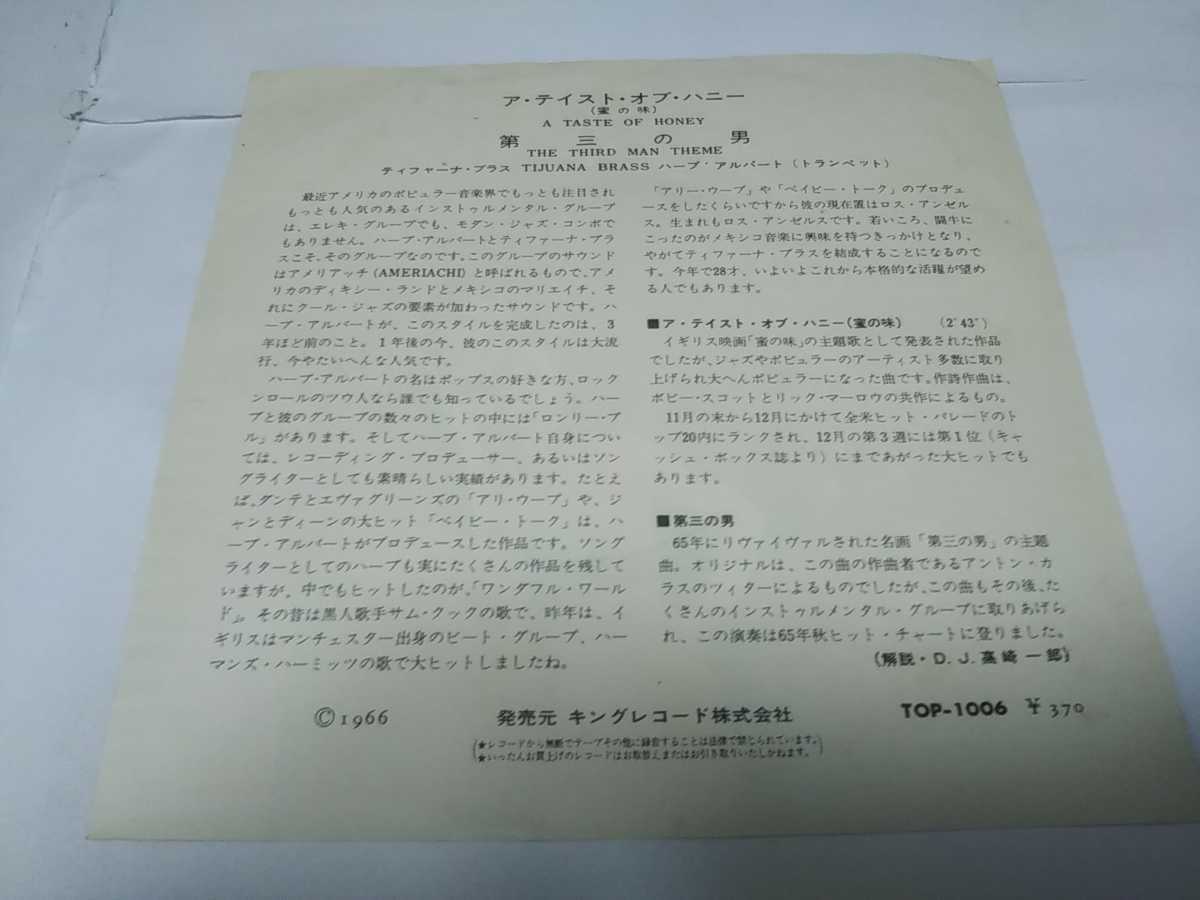 ア・テイスト・オブ・ハニー
(蜜の味)
A TASTE OF HONEY
第三の男
THE THIRD MAN THEME
ティファーナ・ブラス TIJUANA BRASS ハーブ・アルバート (トランペット)
最近アメリカのポピュラー音楽界でもっとも注目され
もっとも人気のあるインストゥルメンタル・グループ
は、エレキ・グループでも、モダン・ジャズ・コンボで
もありません。ハーブ・アルバートとティファーナ・ブラ
スこそ、そのグループなのです。このグループのサウンド
はアメリアッチ(AMERIACHI)と呼ばれるもので、アメ
リカのディキシー・ランドとメキシコのマリエイチ、そ
れにクール・ジャズの要素が加わったサウンドです。ハ
ーブ・アルバートが、このスタイルを完成したのは、3
年ほど前のこと。1年後の今、彼のこのスタイルは大流
行、今やたいへんな人気です。
ハーブ・アルバートの名はポップスの好きな方、ロック
ンロールのツウ人なら誰でも知っているでしょう。ハー
ブと彼のグループの数々のヒットの中には「ロンリー・ブ
ル」があります。そしてハーブ・アルバート自身につい
ては、レコーディング・プロデューサー、あるいはソン
グライターとしても素晴らしい実績があります。たとえ
ば、ダンテとエヴァグリーンズの「アリ・ウープ」や、ジ
ャンとディーンの大ヒット「ベイビー・トーク」は、ハ
ーブ・アルバートがプロデュースした作品です。ソング
ライターとしてのハーブも実にたくさんの作品を残して
いますが、中でもヒットしたのが、「ワンダフル・ワール
ド」。その昔は黒人歌手サム・クックの歌で、昨年は、イ
ギリスはマンチェスター出身のビート・グループ、ハー
マンズ・ハーミッツの歌で大ヒットしましたね。
「アリー・ウープ」や「ベイビー・トーク」のプロデュ
ースをしたくらいですから彼の現在置はロス・アンゼル
ス。生まれもロス・アンゼルスです。若いころ、闘牛に
こったのがメキシコ音楽に興味を持つきっかけとなり、
やがてティファーナ・ブラスを結成することになるので
す。今年で28才、いよいよこれから本格的な活躍が望め
る人でもあります。
■ア・テイスト・オブ・ハニー(蜜の味) (2″43″)
イギリス映画「蜜の味」の主題歌として発表された作品
でしたが、ジャズやポピュラーのアーティスト多数に取り
上げられ大へんポピュラーになった曲です。作詩作曲は、
ボビー・スコットとリック・マーロウの共作によるもの。
11月の末から12月にかけて全米ヒット・パレードのト
ップ20内にランクされ、12月の第3週には第1位(キャ
ッシュ・ボックス誌より)にまであがった大ヒットでも
あります。
■第三の男
65年にリヴァイヴァルされた名画「第三の男」の主題
曲。オリジナルは、この曲の作曲者であるアントン・カ
ラスのツィターによるものでしたが、この曲もその後、た
くさんのインストゥルメンタル・グループに取りあげら
れ、この演奏は65年秋ヒット・チャートに登りました。
(解説・D.J.高崎一郎)
©1966 発売元 キングレコード株式会社 TOP-1006 ¥370
(★レコードから無断でテープその他に録音することは法律で禁じられています。)
(★いったんお買上げのレコードはお取替えまたはお引き取りいたしかねます。)